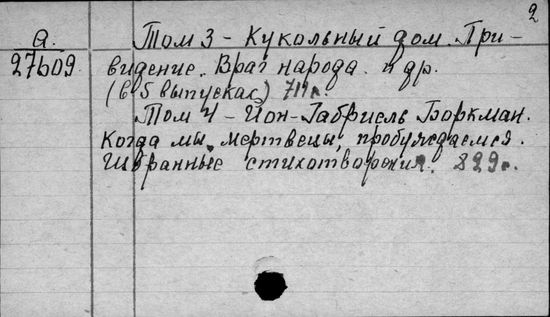 2
а. Том 3 - Кукольный дом. При-
27609 видение. Враг народа. и др.
(в 5 выпусках) 711 с.
Том 4 - Йон-Габриель Боркман.
Когда мы, мертвецы, пробуждаемся.
Избранные стихотворения. 829 с.